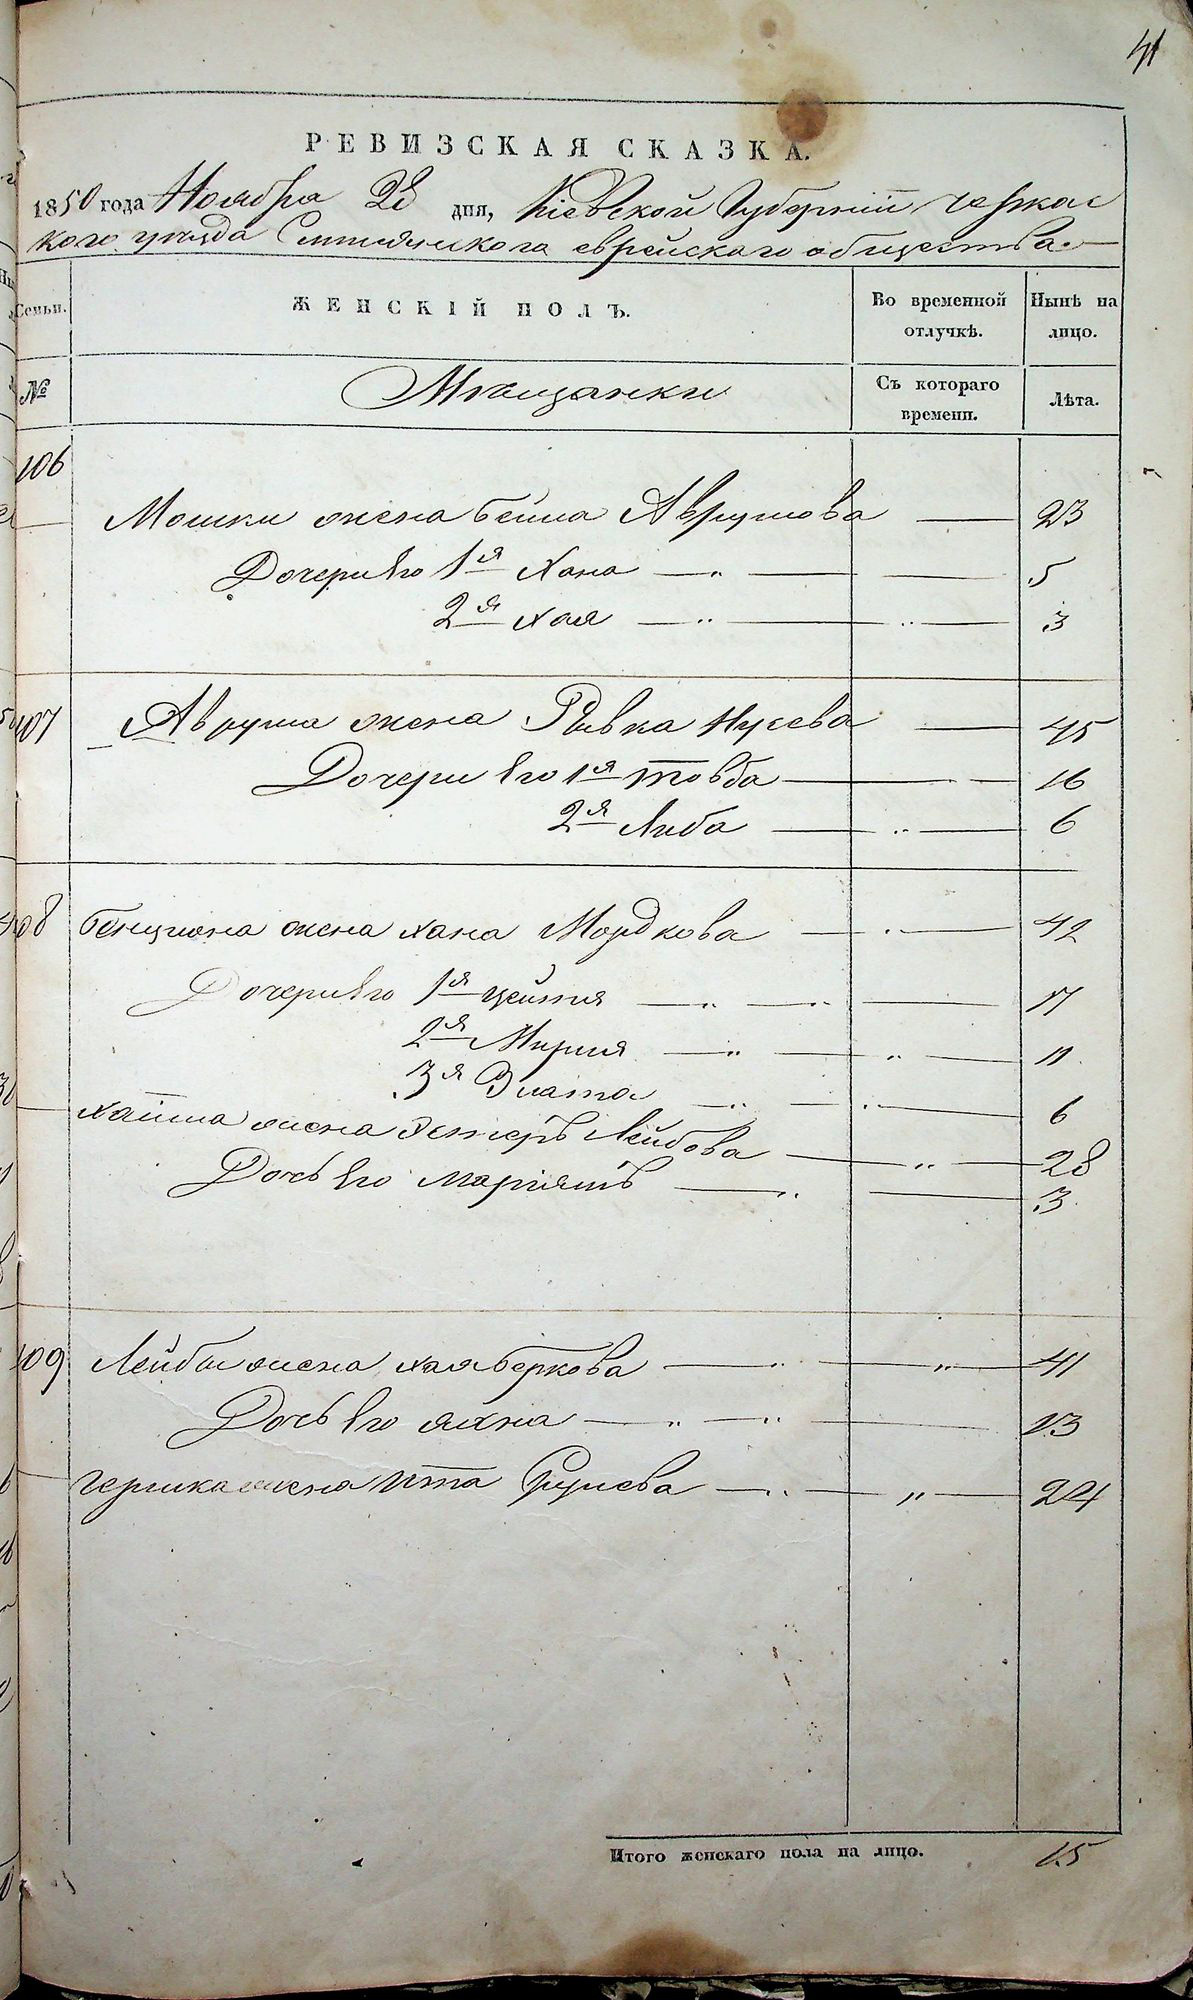 41
РЕВИЗСКАЯ СКАЗКА.
1850 года Ноября 28 дня, Кіевской Губерніи Черкас
кого уѣзда еврейскаго общества.
Семьи.
ЖЕНСКІЙ ПОЛЪ.
Во временной отлучкѣ.
Нынѣ на лицо.
№
Мѣщанки
Съ котораго времени.
Лѣта.
106
Мошки жена бейла Аврумова 23
Дочери Его 1я Хана — " — 5
2я хая — " — " — 3
107 Аврума жена Рывка Нусева 45
Дочери Его 1я товба — 16
2я Либа — " — 6
108 бенциона жена хана Мордкова — " — 42
Дочери Его 1я цейтля — " — " — 17
2я Мирля — " — " — 11
3я Злата — " — " — 6
хаима жена Эстеръ Лейбова — " — 28
Дочь Его Маріямъ — " — 3
109 Лейбы жена хая беркова — " — " — 41
Дочь Его яхна — " — " — 13
жена Ита — " — " — 24
Итого женскаго пола на лицо. 15